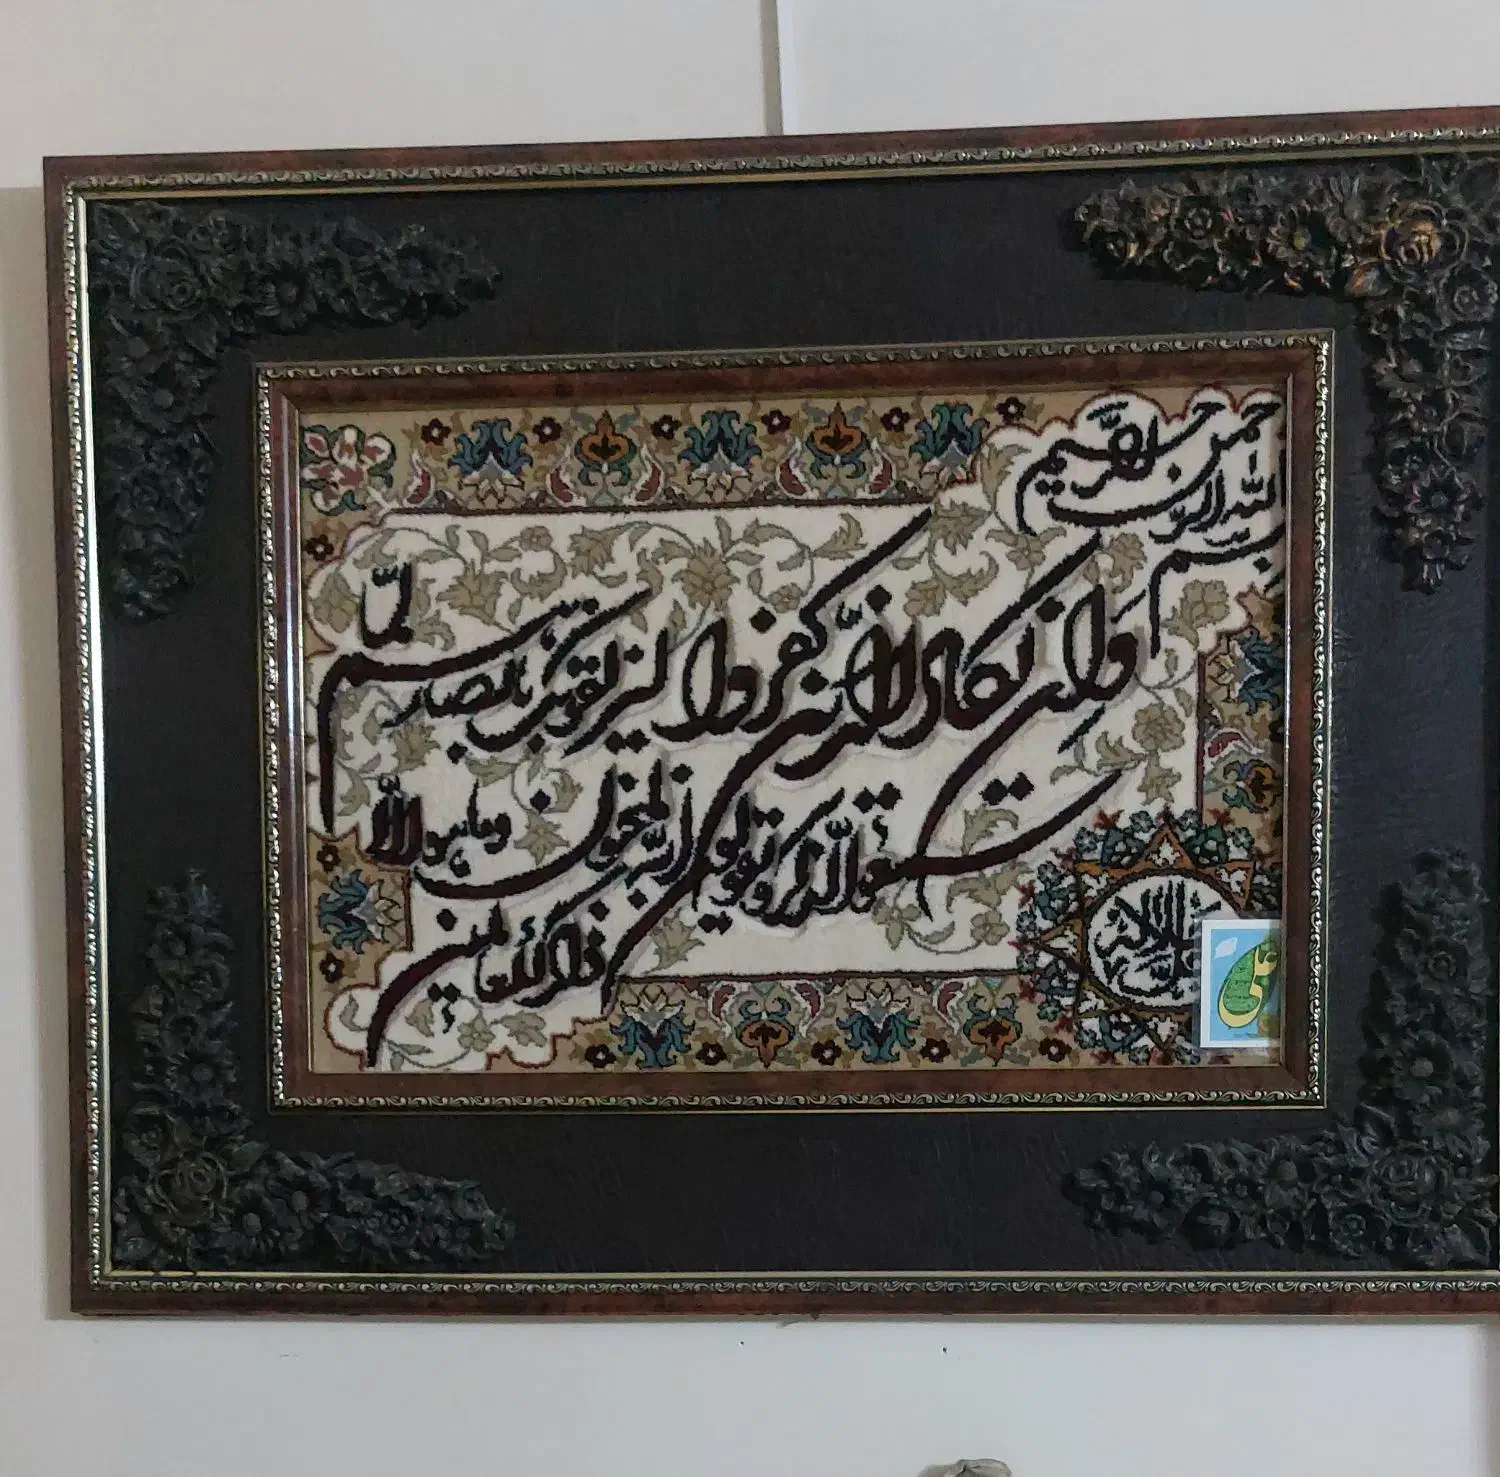 بسم الله الرحمن الرحیم
وَاِن یکاد الذین کفروا لیزلقونک بابصارهم لمّا
سمعوا الذکر و یقولون انه لمجنون و ما هو الّا
ذکر للعالمین
علی